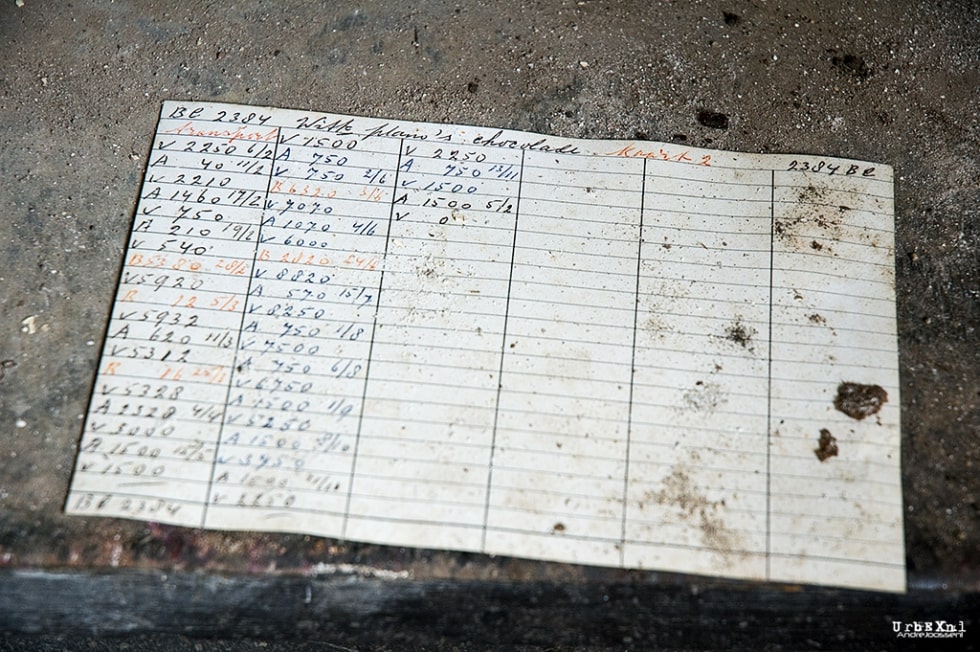 BC 2384 chocolade 2384 BC
transport
V 2250 6/2
A 40 11/2
V 2210
A 1460 17/2
V 750
A 210 19/2
V 540
B 5380 28/2
V 5920
B 12 5/3
V 5932
A 620 11/3
V 5312
B 16 25/3
V 5328
A 2328 4/4
V 3000
A 1500 15/5
V 1500
BC 2384
V 1500
A 750
V 750 2/6
B 6320 3/6
V 7070
A 1070 4/6
V 6000
B 2820 24/6
V 8820
A 570 15/7
V 8250
A 750 1/8
V 7500
A 750 6/8
V 6750
A 1500 1/9
V 5250
A 1500
V 3750
A 1500
V 2250
V 2250
A 750 13/11
V 1500
A 1500 5/2
V 0
UrbEXnl
AndreJoosse.nl